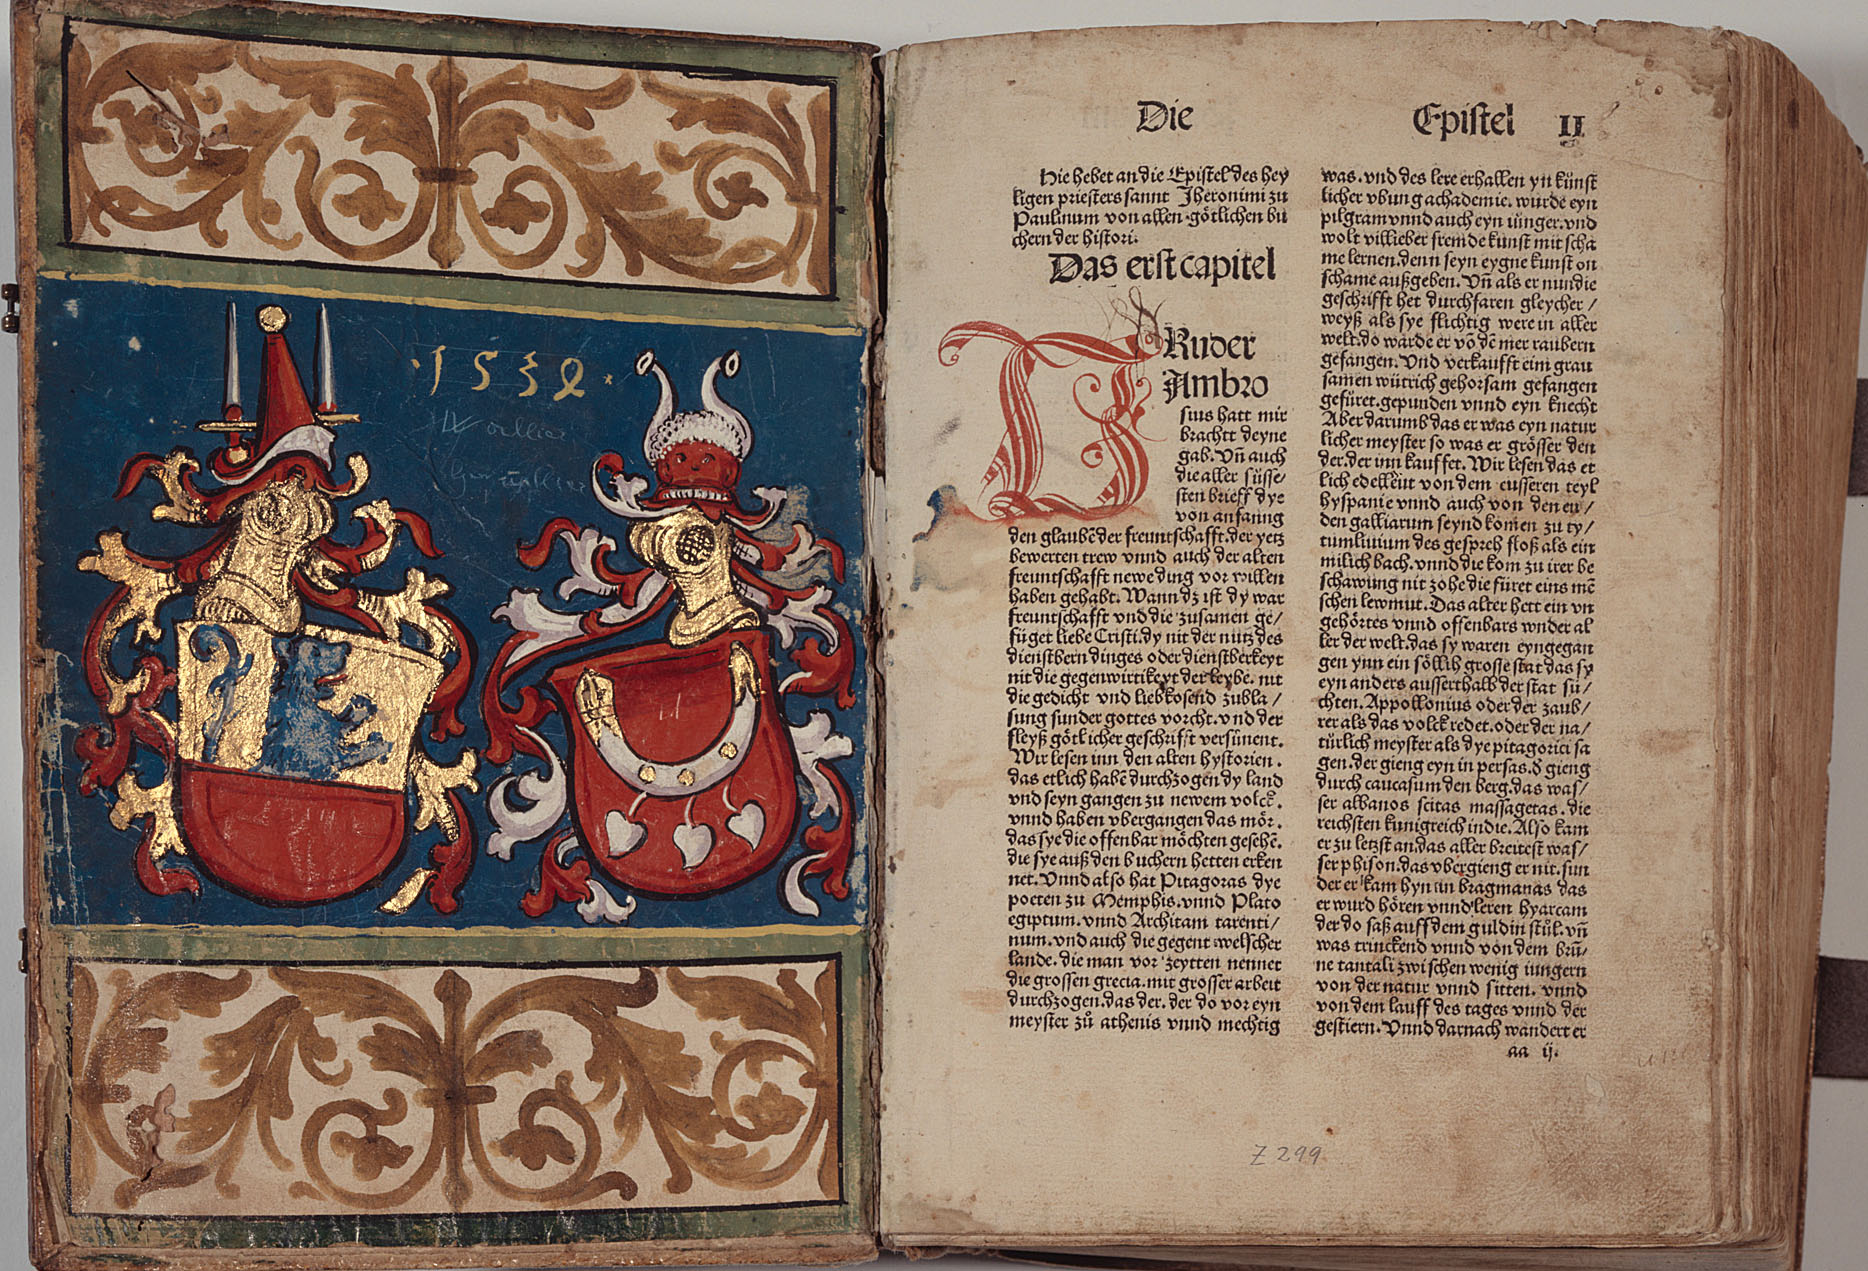 ·1532·
Die
Epistel II
Hie hebet an die Epistel des hey
ligen priesters sannt Jheronimi zu
Paulinum von allen götlichen bü
chern der histori.
Das erst capitel
BRuder
Ambro
sius hatt mir
bracht deyne
gab. Vñ auch
die aller süsse-
sten brieff dye
von anfanng
den glaubē der freuntschafft. der yetz
bewerten trew vnnd auch der alten
freuntschafft newe ding vor willen
haben gehabt. Wann dz ist dy war
freuntschafft vnd die zusamen ge/
füget liebe Cristi. dy nit der nutz des
dienstbern dinges oder dienstberkeyt
nit die gegenwirtikeyt der leybe. nit
die gedicht vnd liebkosend zubla/
sung sunder gottes vorcht. vnd der
fleyß götlicher geschrifft versünent.
Wir lesen inn den alten hystorien.
das etlich habē durchzogen dy land
vnd seyn gangen zu newem volck.
vnnd haben vbergangen das mör.
das sye die offenbar möchten gesehē.
die sye auß den buchern hetten erken
net. Vnnd also hat Pitagoras dye
poeten zu Memphis. vnnd Plato
egiptum. vnnd Architam tarenti/
num. vnd auch die gegent welscher
lande. die man vor zeytten nennet
die grossen grecia. mit grosser arbeit
durchzogen. das der. der do vor eyn
meyster zů athenis vnnd mechtig
was. vnd des lere erhallen yn künst
licher vbung achademie. wurde eyn
pilgram vnnd auch eyn iünger. vnd
wolt villieber fremde kunst mit scha
me lernen. denn seyn eygne kunst on
schame außgeben. Vñ als er nun die
geschrifft het durchfaren gleycher/
weyß als sye flichtig were in aller
welt. do warde er vō dē mer raubern
gefangen. Vnd verkaufft eim grau
samen wütrich gehorsam gefangen
gefüret. gepunden vnnd eyn knecht
Aber darumb das er was eyn natur
licher meyster so was er grösser den
der. der inn kauffet. Wir lesen das et
lich edellēut von dem eusseren teyl
hyspanie vnnd auch von den eu/
den galliarum seynd komen zu ty/
tumliuium des gespreh floß als ein
milich bach. vnnd die kom zu irer be
schawung nit zohe die füret eins mē
schen lewmut. Das alter hett ein vn
gehörtes vnnd offenbars wnder al
ler der welt. das sy waren eyngegan
gen ynn ein söllih grosse stat das sy
eyn anders ausserthalb der stat sü/
chten. Appollonius oder der zaub/
rer als das volck redet. oder der na/
türlich meyster als dye pitagorici sa
gen. der gieng eyn in persas. d gieng
durch caucasum den berg. das was/
ser albanos scitas massagetas. die
reichsten kunigreich indie. Also kam
er zu letzst an das aller breitest was/
ser phison. das vbergieng er nit. sun
der er kam hyn in bragmanas das
er wurd hören vnnd leren hyarcam
der do saß auff dem guldin stůl. vñ
was trinckend vnnd von dem brū-
ne tantali zwischen wenig iungern
von der natur vnnd sitten. vnnd
von dem lauff des tages vnnd der
gestiern. Vnnd darnach wandert er
aa ij.
Z 299